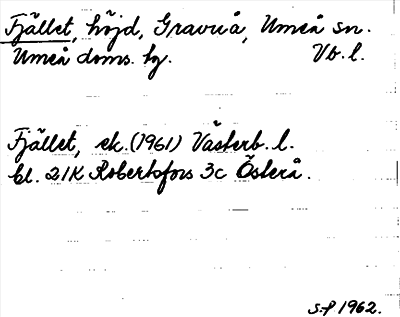 Fjället, höjd, Gravuå, Umeå sn.
Umeå doms. hg. Vb. l.
Fjället, ek. (1961) Västerb. l.
bl. 21K Robertsfors 3c Österå.
S-f 1962.